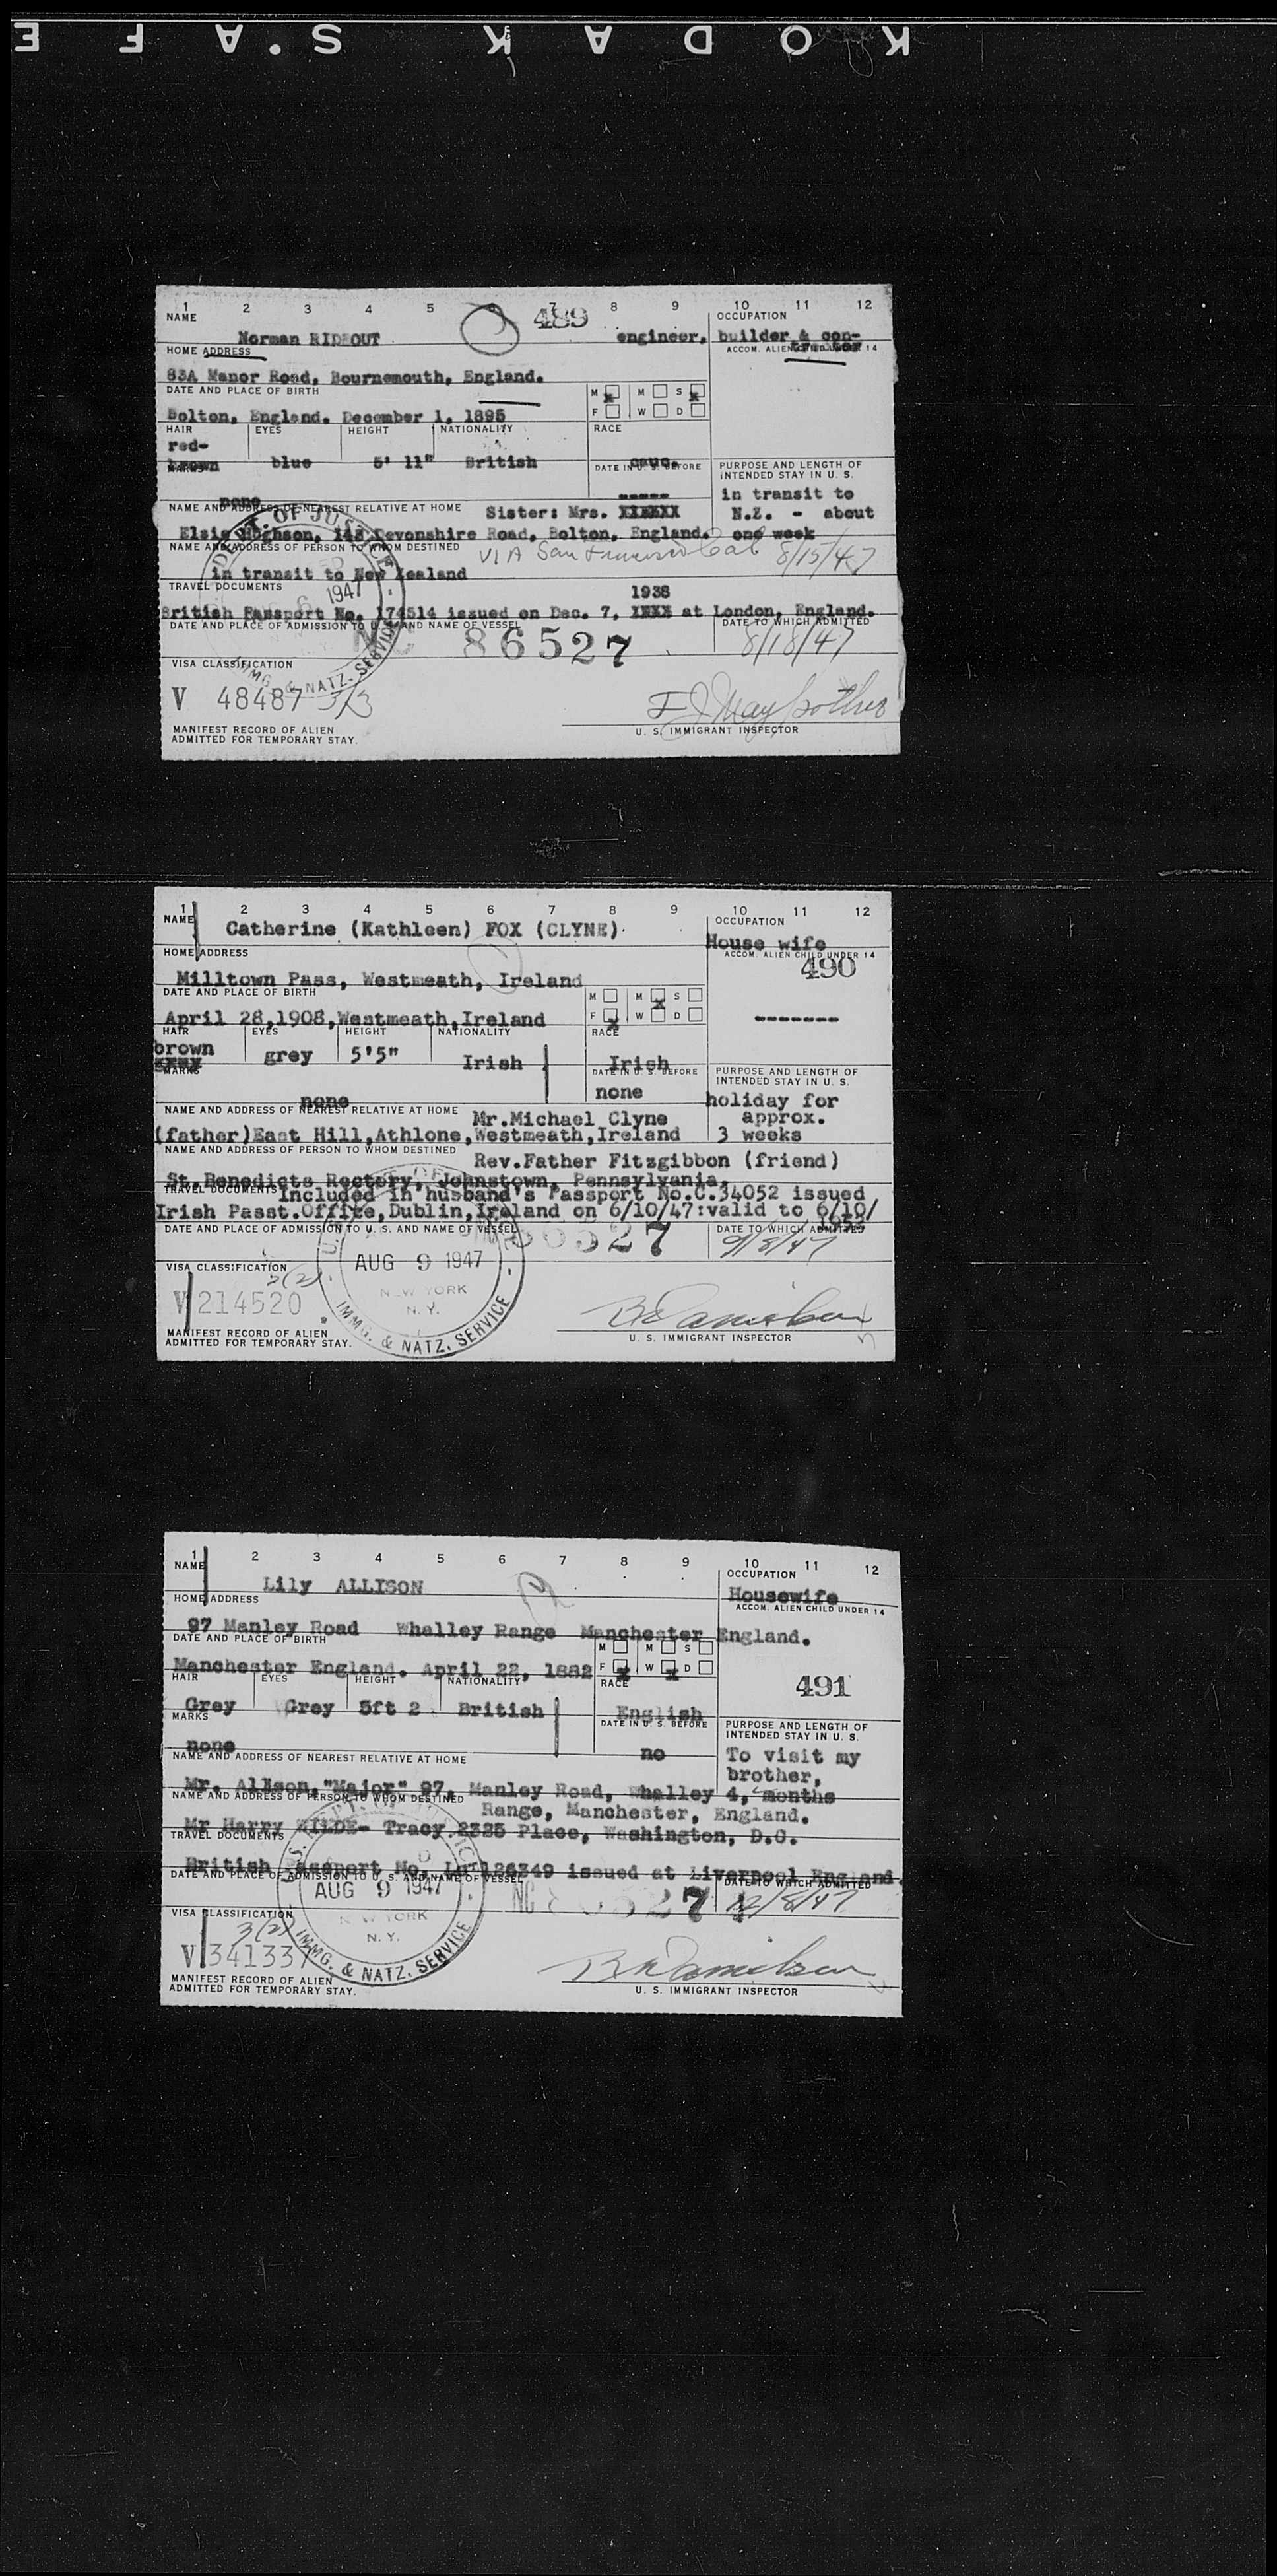 KODAK S.A.F E
1 2 3 4 5 6 7 8 9 10 11 12
NAME
489
OCCUPATION
Norman RIDEOUT
engineer, builder & con-
HOME ADDRESS
ACCOM. ALIEN CHILD UNDER 14
83A Manor Road, Bournemouth, England.
DATE AND PLACE OF BIRTH
M x M S x
Bolton, England. December 1, 1895
F W D
HAIR EYES HEIGHT NATIONALITY RACE
red-
brown blue 5' 11" British cauc.
MARKS DATE IN U. S. BEFORE PURPOSE AND LENGTH OF
INTENDED STAY IN U. S.
none ----- in transit to
NAME AND ADDRESS OF NEAREST RELATIVE AT HOME Sister: Mrs. XXXXXX N.Z. - about
Elsie Hughson, 148 Devonshire Road, Bolton, England. one week
NAME AND ADDRESS OF PERSON TO WHOM DESTINED VIA San Francisco Cal 8/15/47
in transit to New Zealand
TRAVEL DOCUMENTS 1938
British Passport No. 174514 issued on Dec. 7, XXXX at London, England.
DATE AND PLACE OF ADMISSION TO U. S. AND NAME OF VESSEL DATE TO WHICH ADMITTED
NC 86527 8/18/47
DEPT. OF JUSTICE
1947
IMMG. & NATZ. SERVICE
VISA CLASSIFICATION
V 48487 3/3
MANIFEST RECORD OF ALIEN
ADMITTED FOR TEMPORARY STAY.
U. S. IMMIGRANT INSPECTOR
1 2 3 4 5 6 7 8 9 10 11 12
NAME Catherine (Kathleen) FOX (CLYNE)
OCCUPATION
House wife
HOME ADDRESS
ACCOM. ALIEN CHILD UNDER 14
490
Milltown Pass, Westmeath, Ireland
DATE AND PLACE OF BIRTH
M M x S
April 28,1908,Westmeath,Ireland F x W D -------
HAIR EYES HEIGHT NATIONALITY RACE
brown grey 5'5" Irish Irish
MARKS DATE IN U. S. BEFORE PURPOSE AND LENGTH OF
INTENDED STAY IN U. S.
none none holiday for
NAME AND ADDRESS OF NEAREST RELATIVE AT HOME Mr.Michael Clyne approx.
(father)East Hill,Athlone,Westmeath,Ireland 3 weeks
NAME AND ADDRESS OF PERSON TO WHOM DESTINED Rev.Father Fitzgibbon (friend)
St.Benedicts Rectory, Johnstown, Pennsylvania,
TRAVEL DOCUMENTS Included in husband's Passport No.C.34052 issued
Irish Passt.Office,Dublin,Ireland on 6/10/47:valid to 6/10/
1952
DATE AND PLACE OF ADMISSION TO U. S. AND NAME OF VESSEL DATE TO WHICH ADMITTED
86527 9/8/47
AUG 9 1947
NEW YORK
N. Y.
IMMG. & NATZ. SERVICE
VISA CLASSIFICATION
3(2)
V 214520
MANIFEST RECORD OF ALIEN
ADMITTED FOR TEMPORARY STAY.
U. S. IMMIGRANT INSPECTOR
1 2 3 4 5 6 7 8 9 10 11 12
NAME
OCCUPATION
Lily ALLISON
Housewife
HOME ADDRESS
ACCOM. ALIEN CHILD UNDER 14
97 Manley Road Whalley Range Manchester England.
DATE AND PLACE OF BIRTH
M M S
Manchester England. April 22, 1882 F x W x D
HAIR EYES HEIGHT NATIONALITY RACE
491
Grey Grey 5ft 2 British English
MARKS DATE IN U. S. BEFORE PURPOSE AND LENGTH OF
INTENDED STAY IN U. S.
none no To visit my
NAME AND ADDRESS OF NEAREST RELATIVE AT HOME brother,
Mr. Allison,"Major" 97, Manley Road, Whalley 4, months
NAME AND ADDRESS OF PERSON TO WHOM DESTINED Range, Manchester, England.
Mr Harry WILDE- Tracy.2325 Place, Washington, D.C.
TRAVEL DOCUMENTS
British Passport No. Ln 126349 issued at Liverpool England.
DATE AND PLACE OF ADMISSION TO U. S. AND NAME OF VESSEL DATE TO WHICH ADMITTED
NC 86527 12/8/47
AUG 9 1947
NEW YORK
N. Y.
IMMG. & NATZ. SERVICE
VISA CLASSIFICATION
3(2)
V 341337
MANIFEST RECORD OF ALIEN
ADMITTED FOR TEMPORARY STAY.
U. S. IMMIGRANT INSPECTOR